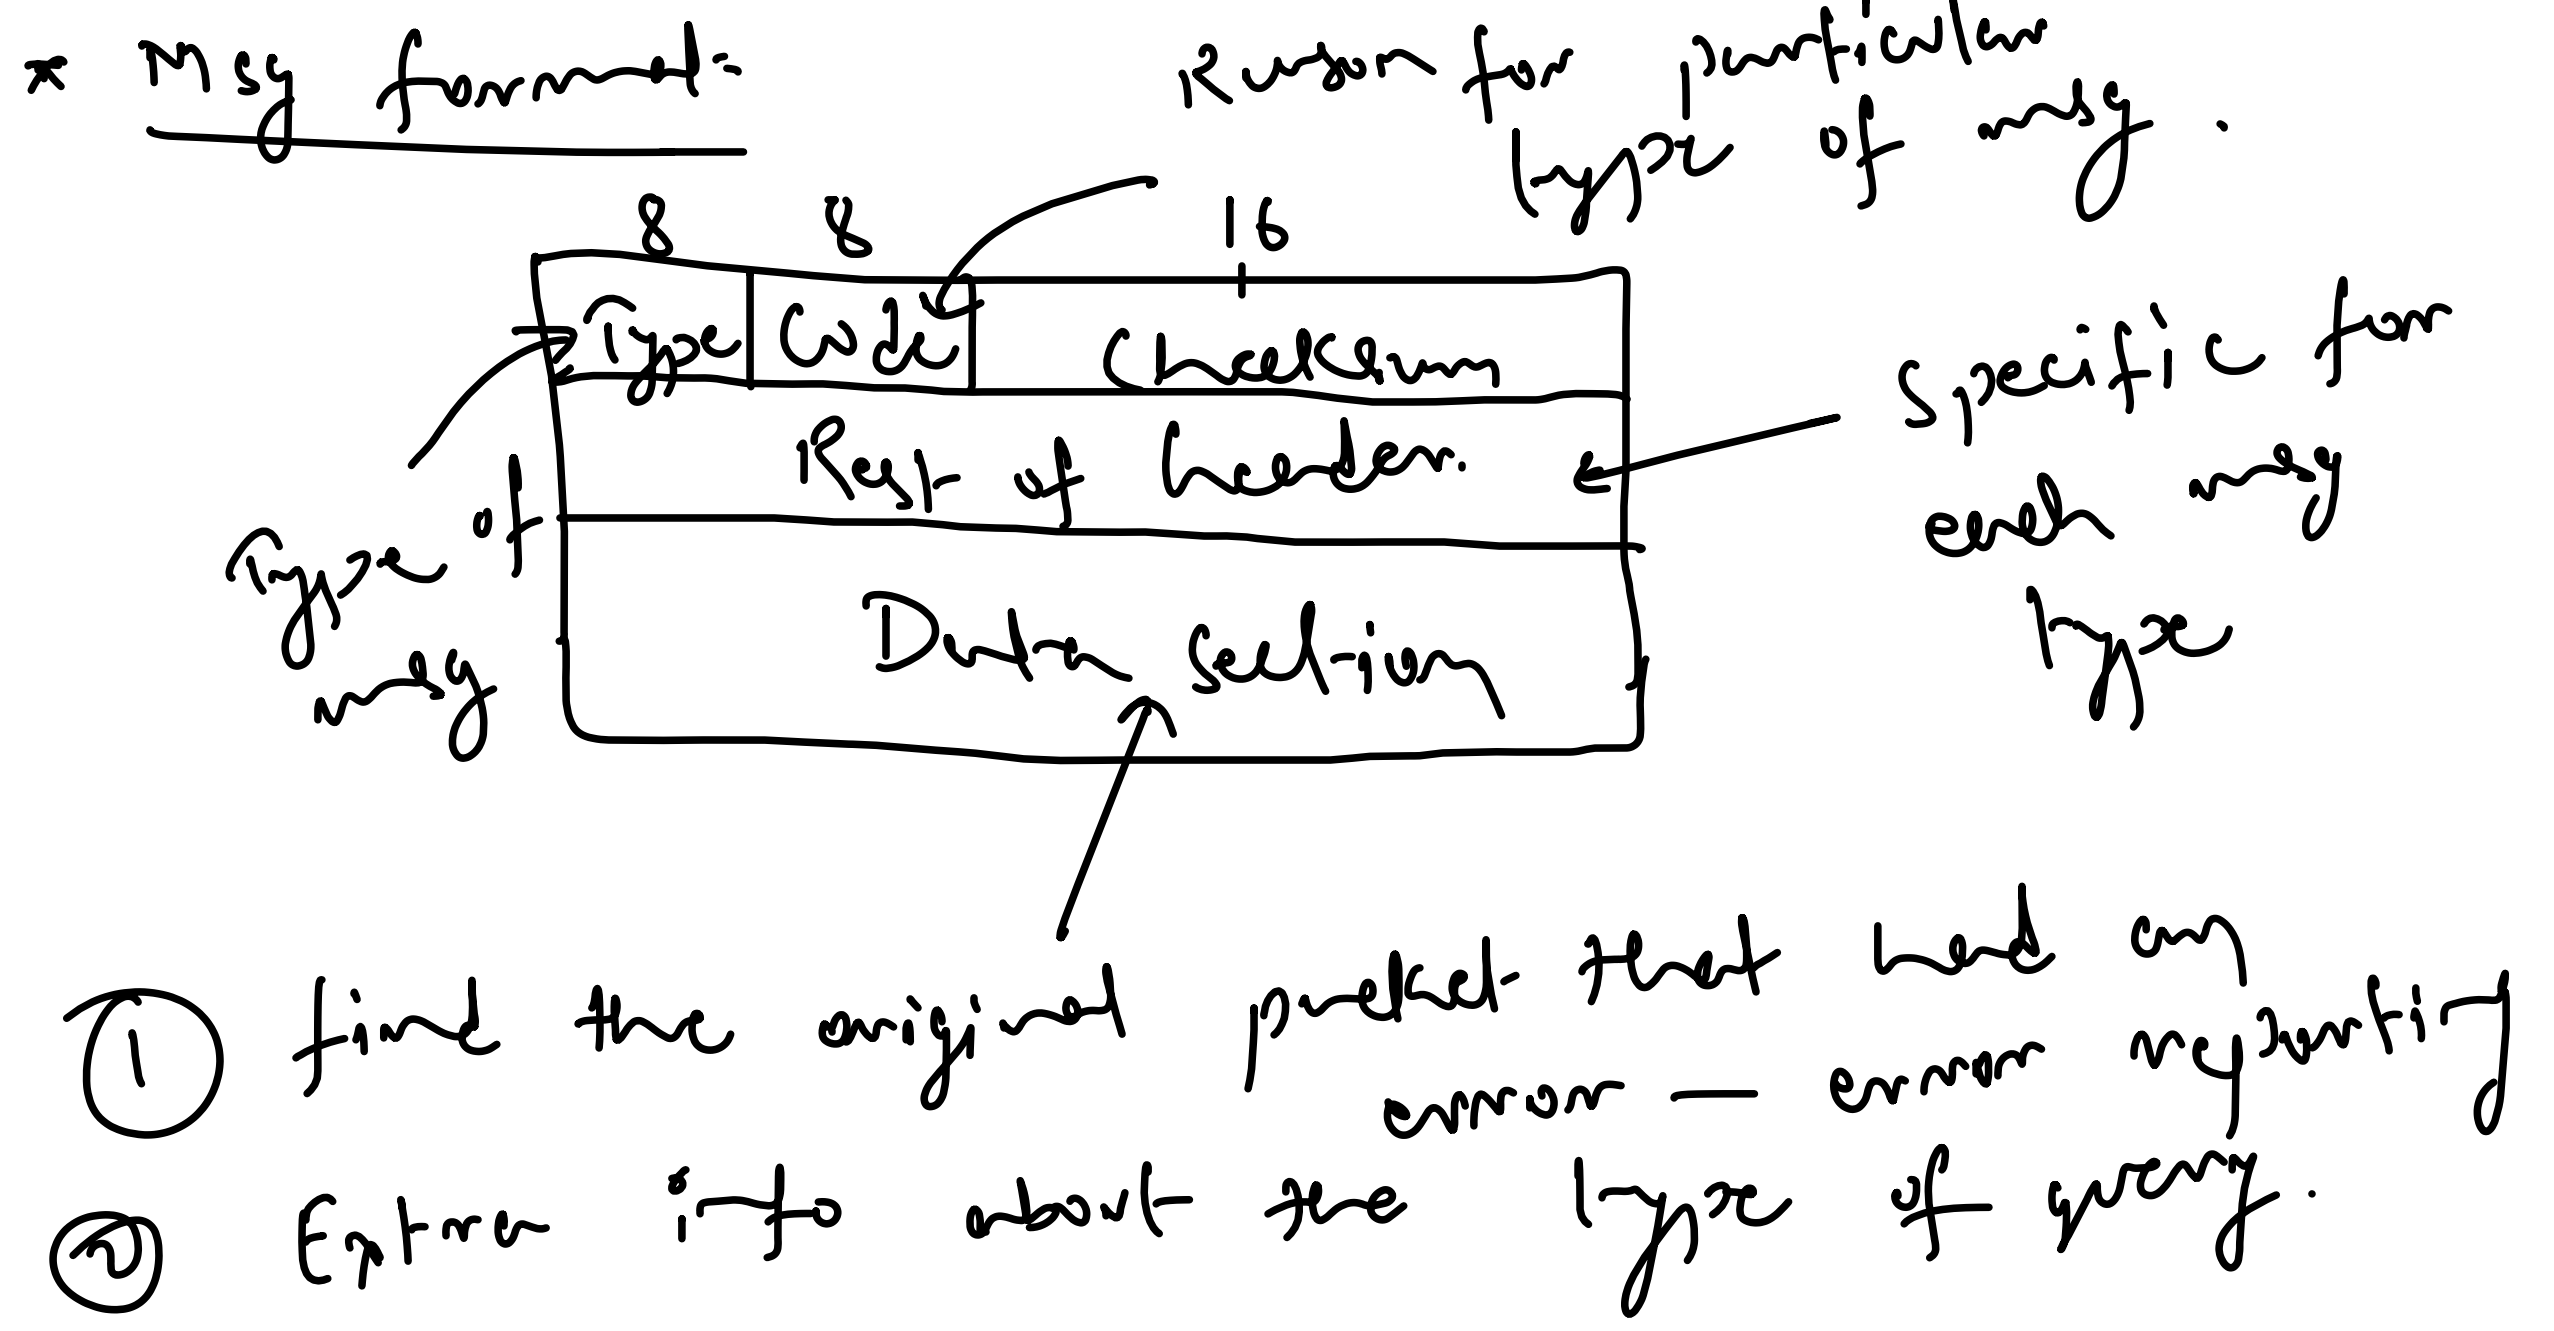 * Msg format:-
Reason for particular
type of msg.
8 8 16
Type Code Checksum
Rest of header.
Data section
Type of
msg
Specific for
each msg
type
① find the original packet that had an
error — error reporting
② Extra info about the type of query.